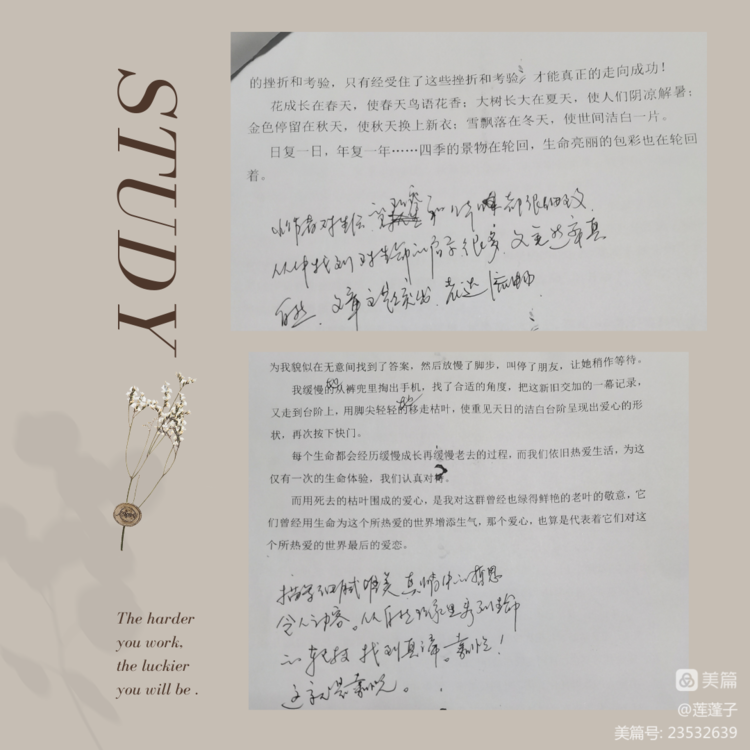 STUDY
的挫折和考验，只有经受住了这些挫折和考验，才能真正的走向成功！
花成长在春天，使春天鸟语花香；大树长大在夏天，使人们阴凉解暑；
金色停留在秋天，使秋天换上新衣；雪飘落在冬天，使世间洁白一片。
日复一日，年复一年……四季的景物在轮回，生命亮丽的包彩也在轮回
着。
作者对生活 观察 和 都很细致
从中找到对生命的启示很多 文笔 真
自然 文章主题突出 表达
为我貌似在无意间找到了答案，然后放慢了脚步，叫停了朋友，让她稍作等待。
我缓慢的从裤兜里掏出手机，找了合适的角度，把这新旧交加的一幕记录，
又走到台阶上，用脚尖轻轻的移走枯叶，使重见天日的洁白台阶呈现出爱心的形
状，再次按下快门。
每个生命都会经历缓慢成长再缓慢老去的过程，而我们依旧热爱生活，为这
仅有一次的生命体验，我们认真对待。
而用死去的枯叶围成的爱心，是我对这群曾经也绿得鲜艳的老叶的敬意，它
们曾经用生命为这个所热爱的世界增添生气，那个爱心，也算是代表着它们对这
个所热爱的世界最后的爱恋。
描写细腻唯美 真情 的哲思
令人动容。从自然 到生命
的 找到真谛。 ！
这就是 。
The harder
you work,
the luckier
you will be .
美篇
@莲蓬子
美篇号: 23532639